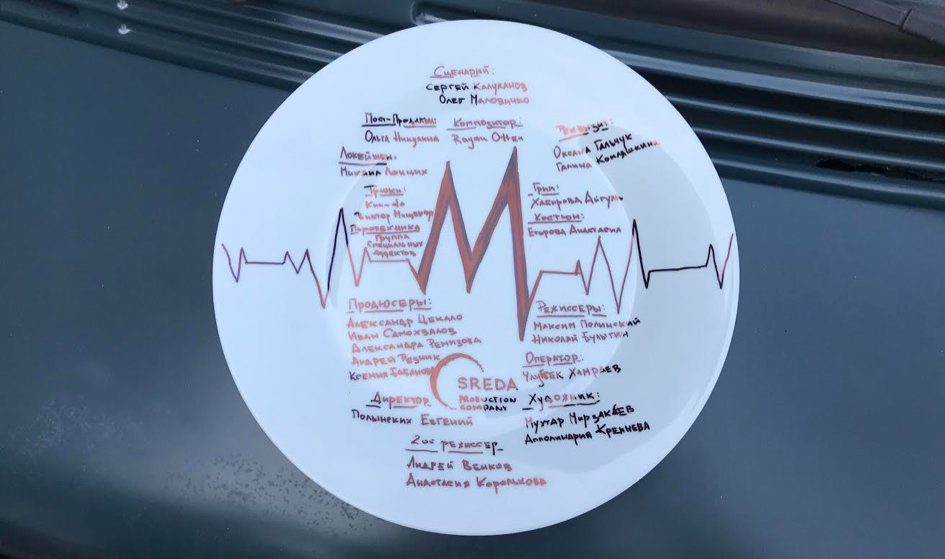 Сценарий:
Сергей Калужанов
Олег Маловичко
Пост-Продакшн:
Ольга Ницулина
Композитор:
Ryan Otter
Реквизит:
Оксана Гальчук
Галина Конляшкина
Локейшн:
Михаил Лончих
Трюки:
Kun-do
Виктор Мищенко
Пиротехника
Группа
специальных
эффектов
M
Грим:
Хабирова Айгуль
Костюм:
Егорова Анастасия
Продюсеры:
Александр Цекало
Иван Самохвалов
Александра Ремизова
Андрей Резник
Ксения
Режиссеры:
Максим Полинский
Николай Булыгин
Оператор:
Улугбек Хамраев
SREDA
PRODUCTION
COMPANY
Директор
Полынских Евгений
Художник:
Мухтар Мирзакеев
Апполинария Кремнева
2ой режиссер
Андрей Венков
Анастасия Королькова